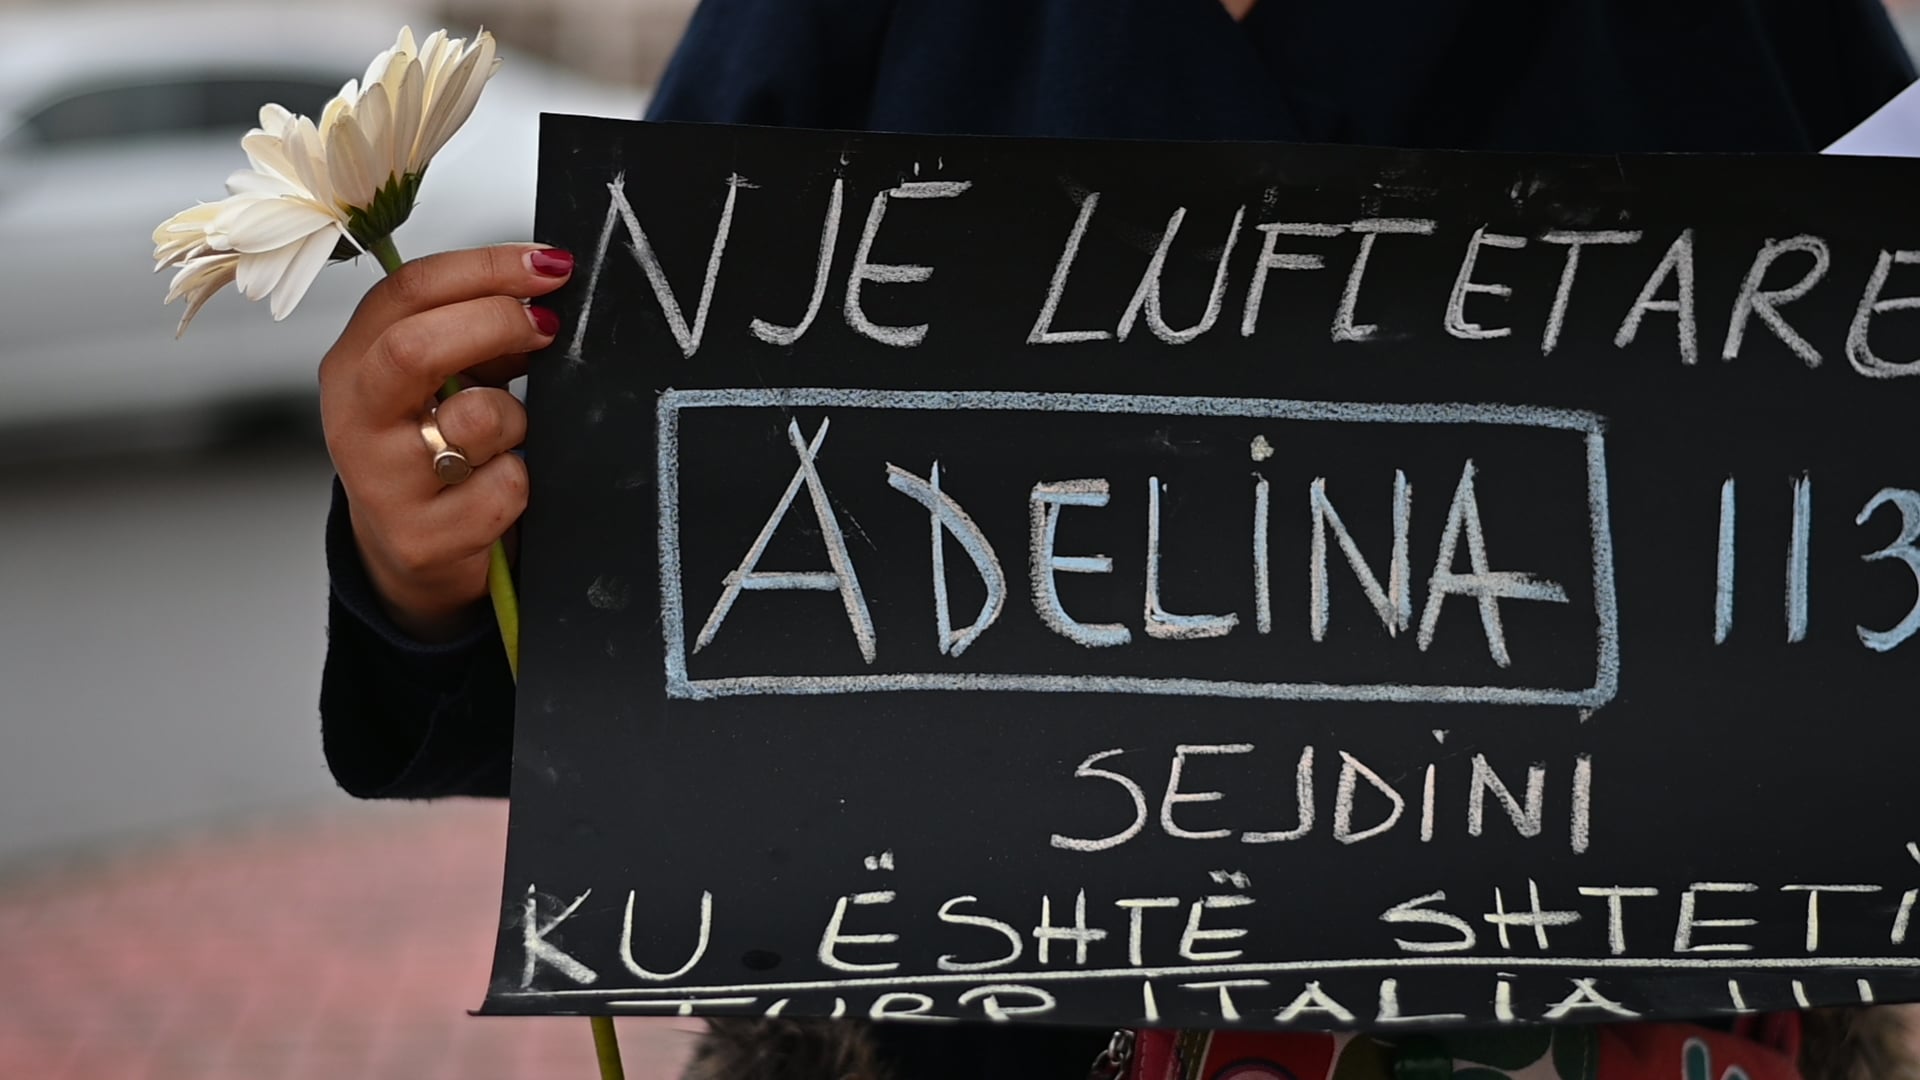 NJË LUFTËTARE
ADELINA 113
SEJDINI
KU ËSHTË SHTETI
TURP ITALIA !!!